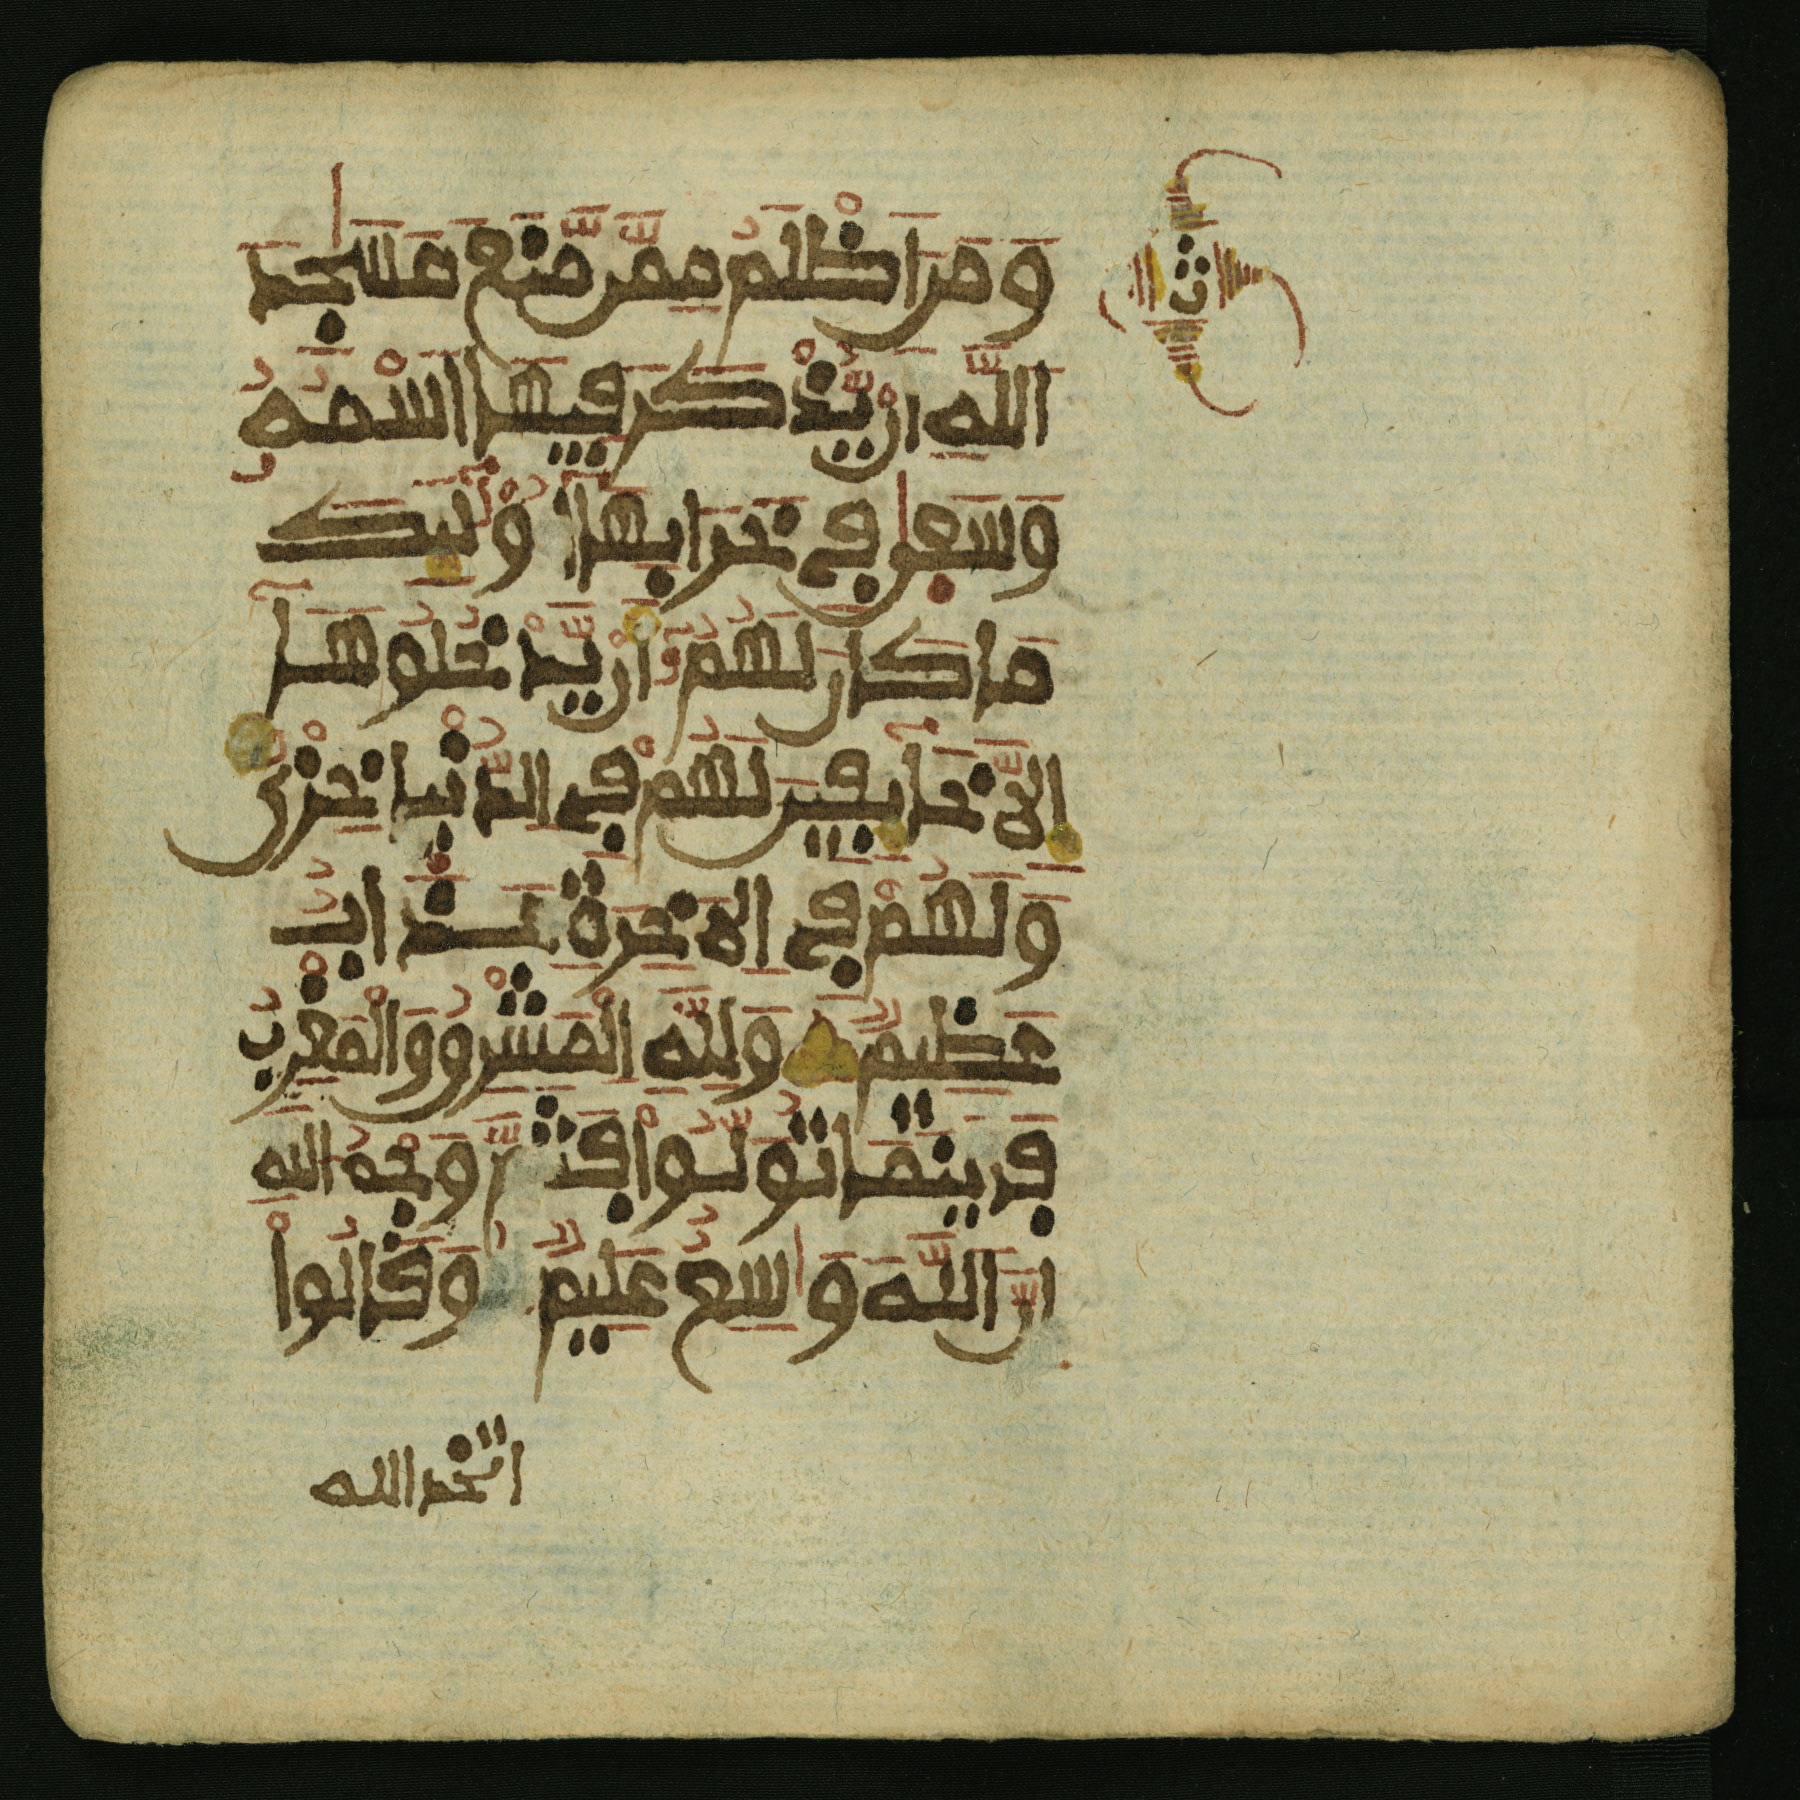 وَمَنَ اَظْلَمُ مِمَّن مَّنَعَ مَسَٰجِدَ
اللَّهِ أَنْ يُّذْكَرَ فِيهَا اَسْمُهُ
وَسَعىٰ فِي خَرَابِهَا أُوْلَئِكَ
مَا كَانَ لَهُمُ أَنْ يَّدْخُلُوهَا
إِلاَّ خَآئِفِينَ لَهُمْ فِي الدُّنْيَا خِزْيٌ
وَلَهُمْ فِي الاَخِرَةِ عَذَابٌ
عَظِيمٌ وَلِلَّهِ الْمَشْرِقُ وَالْمَغْرِبُ
فَأَيْنَمَا تُوَلُّواْ فَثَمَّ وَجْهُ اللهِ
إِنَّ اللَّهَ وَٰسِعٌ عَلِيمٌ وَقَالُواْ
اتخذ الله